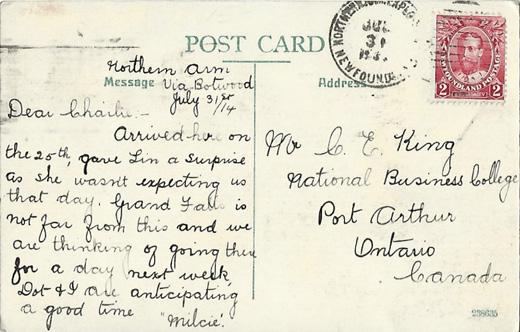 POST CARD
Northern Arm
Message Via Botwood
July 31st/14
Dear Charlie:-
Arrived here on
the 25th, gave Lin a surprise
as she wasn't expecting us
that day. Grand Falls is
not far from this and we
are thinking of going there
for a day next week,
Dot & I are anticipating
a good time "Milcie".
Address
Mr C. E. King
National Business College
Port Arthur
Ontario
Canada
JUL
31
NEWFOUND
NEWFOUNDLAND POSTAGE
2 2
238635